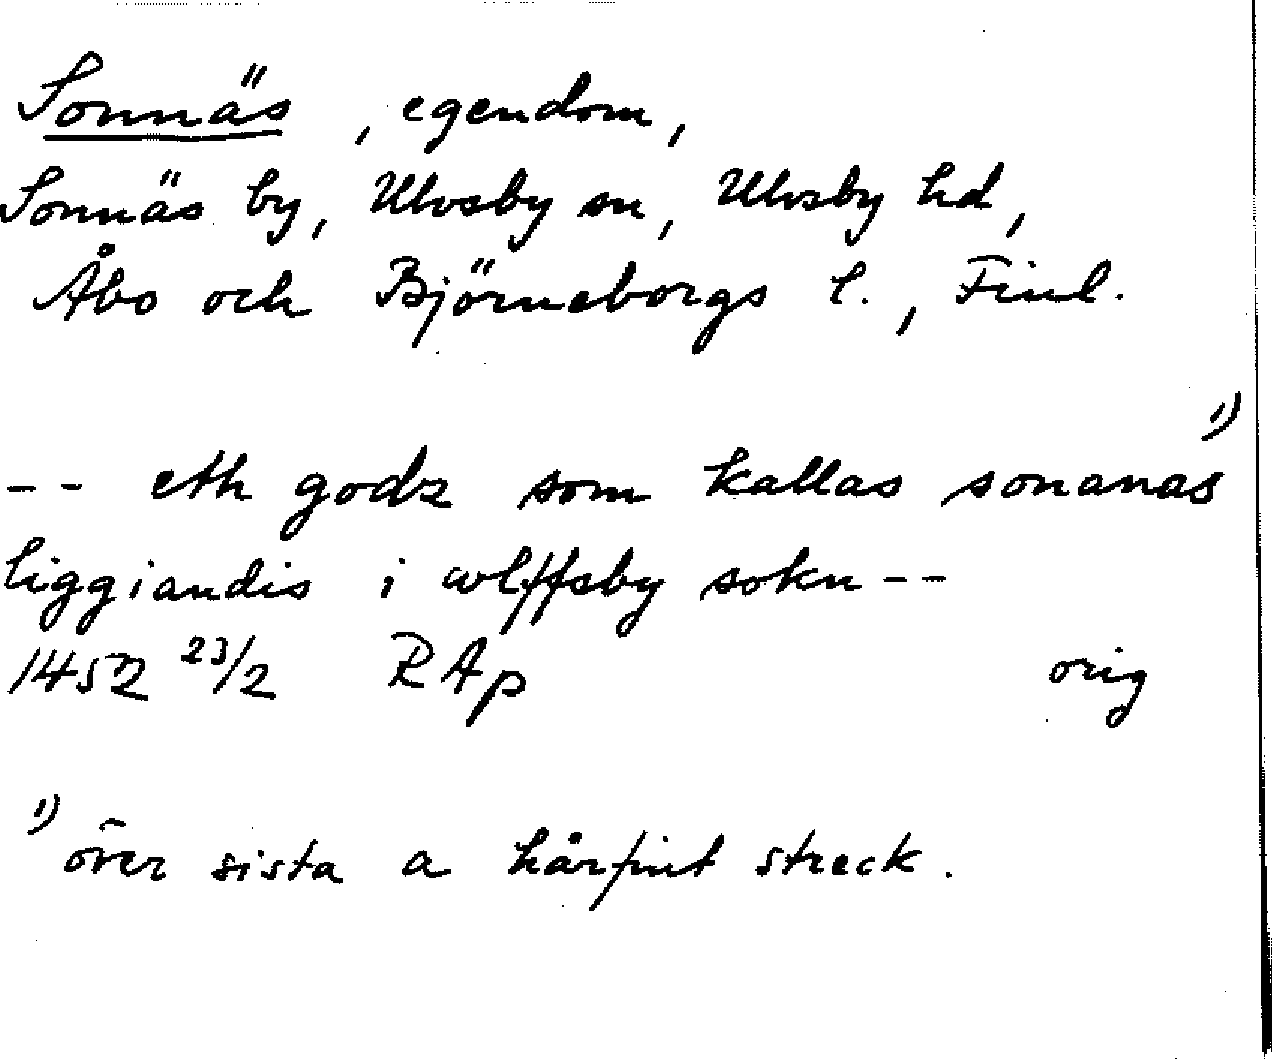 Sonnäs, egendom,
Sonnäs by, Ulvsby sn, Ulvsby hd,
Åbo och Björneborgs l., Finl.
-- eth godz som kallas sonanas 1)
liggiandis i wlffsby sokn --
1452 23/2 RAp orig
1) över sista a hårfint streck.